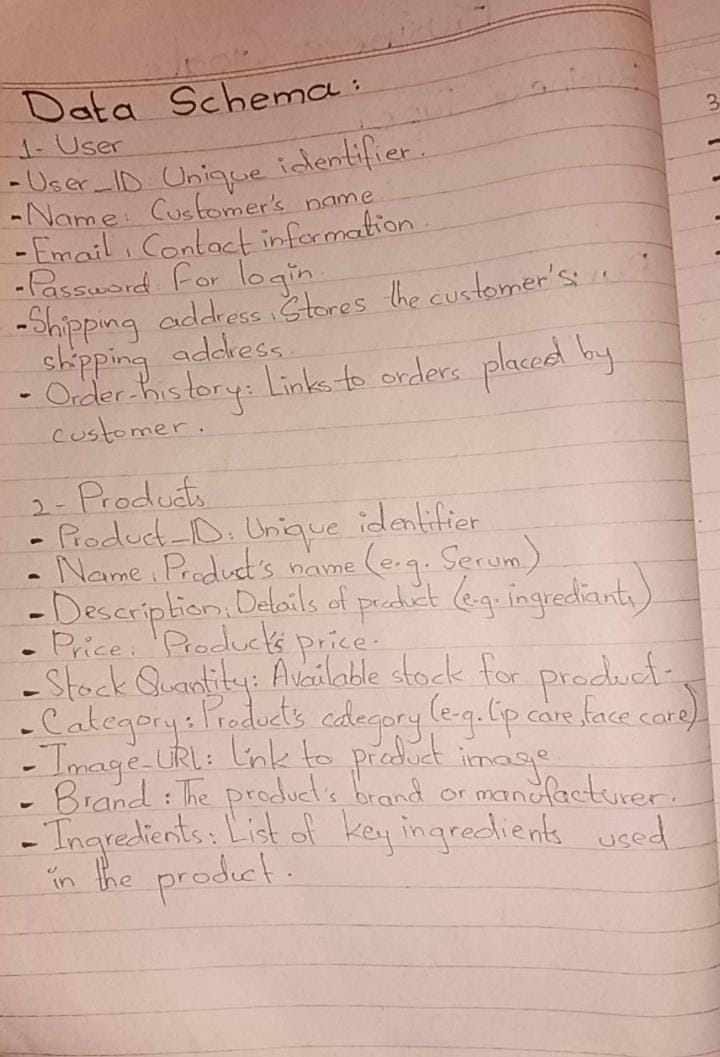 Data Schema:
1- User
- User_ID: Unique identifier.
- Name: Customer's name
- Email: Contact information.
- Password: For login
- Shipping address: Stores the customer's
shipping address
- Order-history: Links to orders placed by
customer.
2- Products
- Product_ID: Unique identifier
- Name: Product's name (e.g. Serum)
- Description: Details of product (e.g. ingrediants)
- Price: Product's price.
- Stock Quantity: Available stock for product.
- Category: Product's category (e-g. lip care, face care)
- Image-URL: Link to product image
- Brand: The product's brand or manufacturer.
- Ingredients: List of key ingredients used
in the product.
3